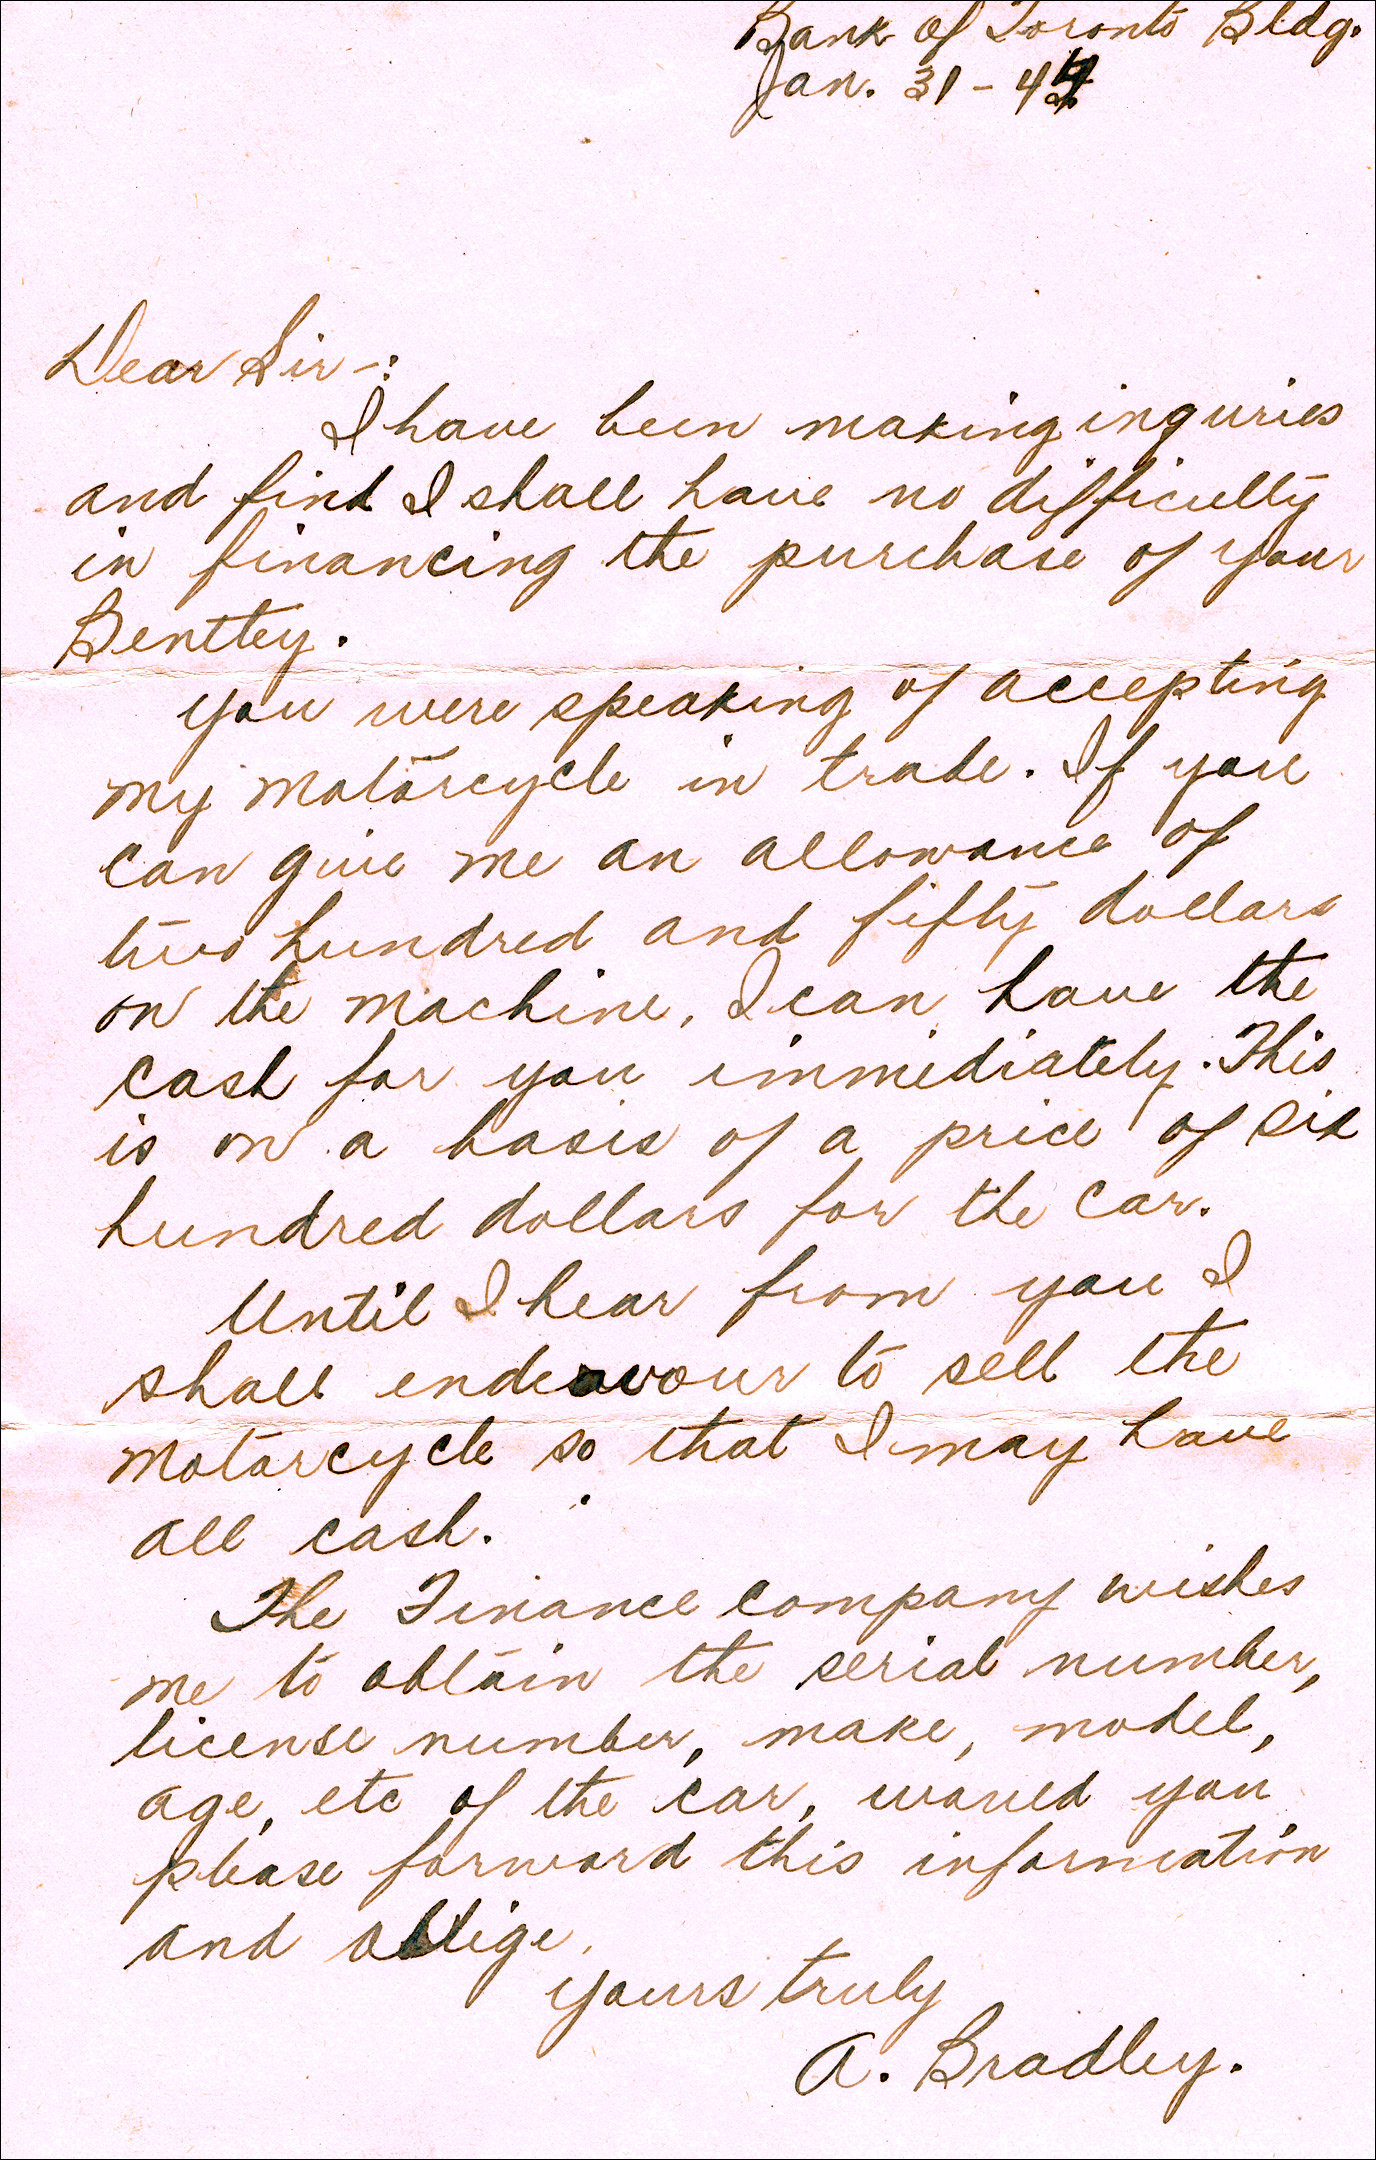 Bank of Toronto Bldg.
Jan. 31 - 4
Dear Sir -:
I have been making inquries
and find I shall have no difficulty
in financing the purchase of your
Bentley.
You were speaking of accepting
my motorcycle in trade. If you
can give me an allowance of
two hundred and fifty dollars
on the machine, I can have the
cash for you immediately. This
is on a basis of a price of six
hundred dollars for the car.
Until I hear from you I
shall endeavour to sell the
motorcycle so that I may have
all cash.
The Finance company wishes
me to obtain the serial number,
license number, make, model,
age, etc of the car, would you
please forward this information
and oblige.
Yours truly
A. Bradley.